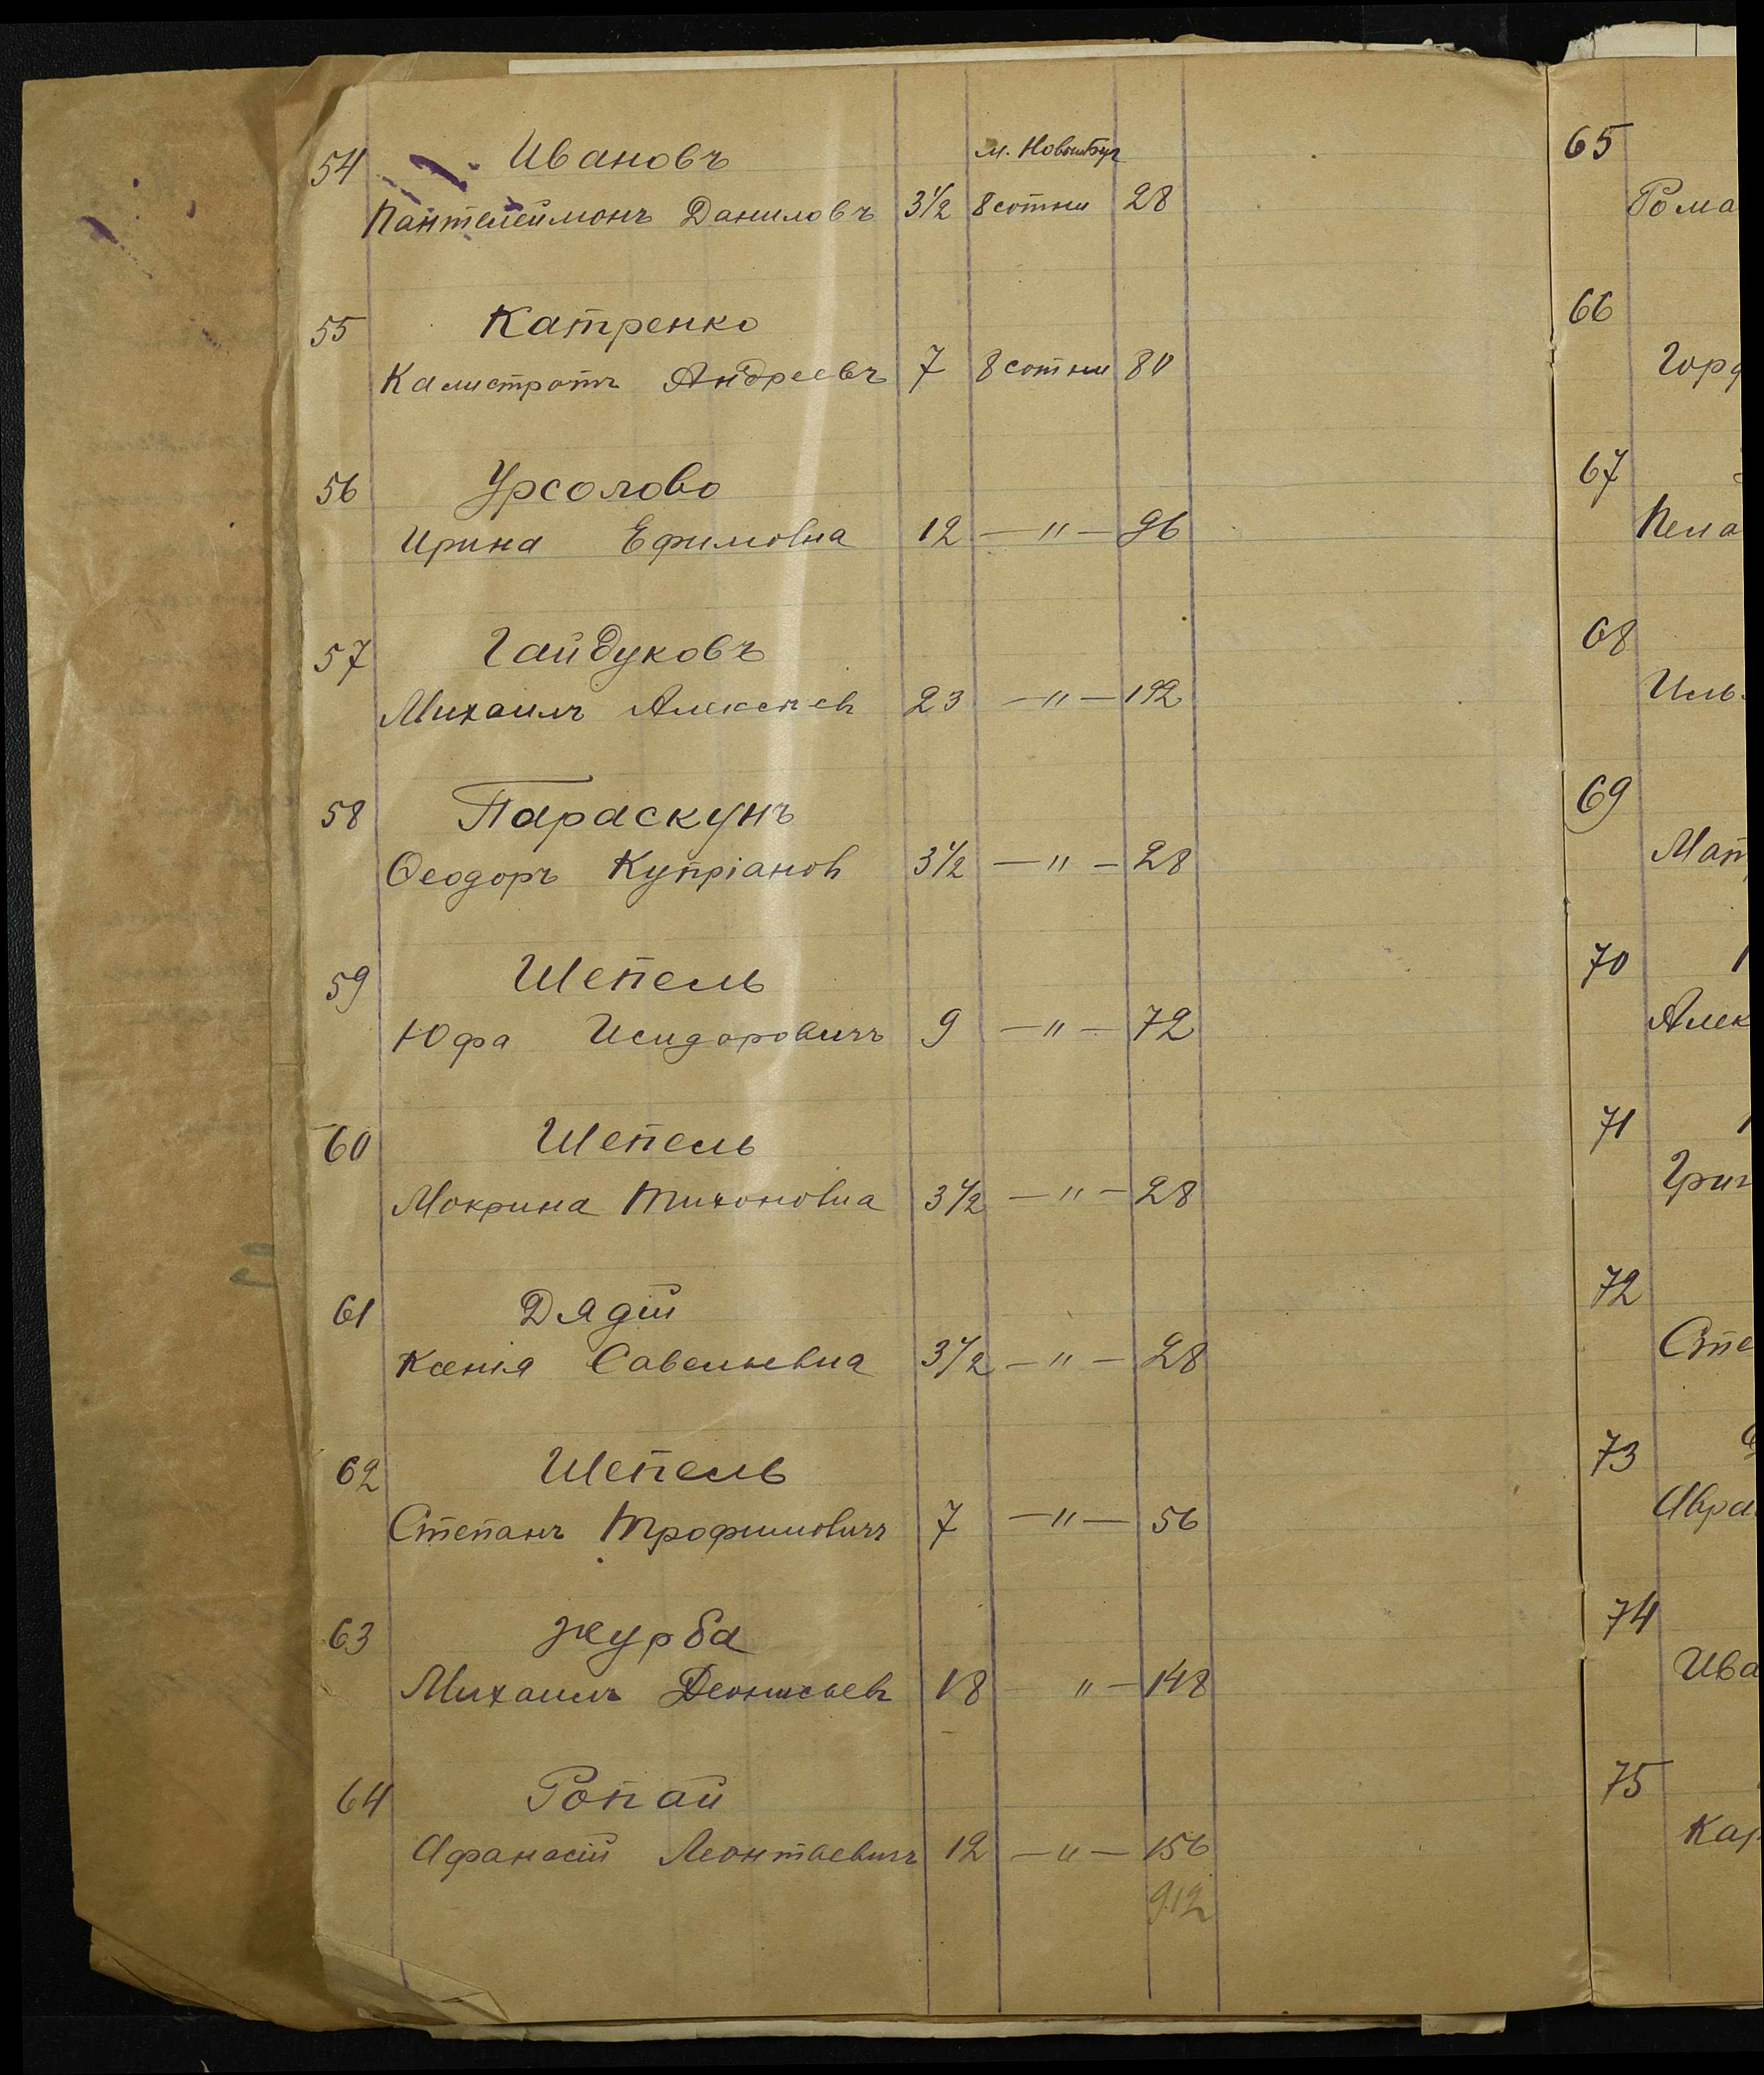 54 Ивановъ м. Новый Буг
Пантелеймонъ Даниловъ 3½ 8 сотни 28
55 Катренко
Калистратъ Андреевъ 7 8 сотни 80
56 Урсолово
Ирина Ефимовна 12 — " — 96
57 Гайдуковъ
Михаилъ Алексѣев 23 — " — 192
58 Параскунъ
Ѳеодоръ Купріанов 3½ — " — 28
59 Шепель
Юфа Исидоровичъ 9 — " — 72
60 Шепель
Мокрина Тихоновна 3½ — " — 28
61 Дядій
Ксенія Савельевна 3½ — " — 28
62 Шепель
Степанъ Трофимовичъ 7 — " — 56
63 Журба
Михаилъ Деонисьев 18 " — 148
64 Ропай
Афанасій Леонтьевичъ 12 — " — 156
912
65
Рома
66
Горд
67
Пела
68
Иль
69
Мат
70
Алек
71
Григ
72
Сте
73
Авра
74
Ива
75
Кар